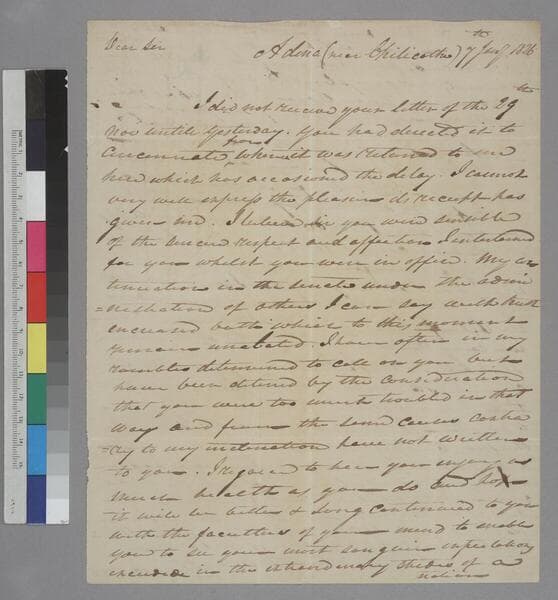 Dear Sir
Adena (near Chilicothe) 7th Jany 1826
I did not receive your letter of the 29th
Nov until yesterday. you had directed it to
Cincinnati from whence it was returned to me
here which has occasioned the delay. I cannot
very well express the pleasure its receipt has
given me. I believe Sir you were sensible
of the sincere respect and affection I entertained
for you whilst you were in office. My con
tinuation in the Senate under the admi
=nistration of others I can say with truth
increased both which to this moment
remain unabated. I have often in my
rambles determined to call on you but
have been deterred by the consideration
that you were too much troubled in that
way and from the same causes contra
=ry to my inclination have not written
to you. I rejoice to hear you enjoy as
much health as you do and hope
it will be better & long continued to you
with the faculties of your mind to enable
you to see your most sanguine expectations
exceeded in the extraordinary strides of a
nation